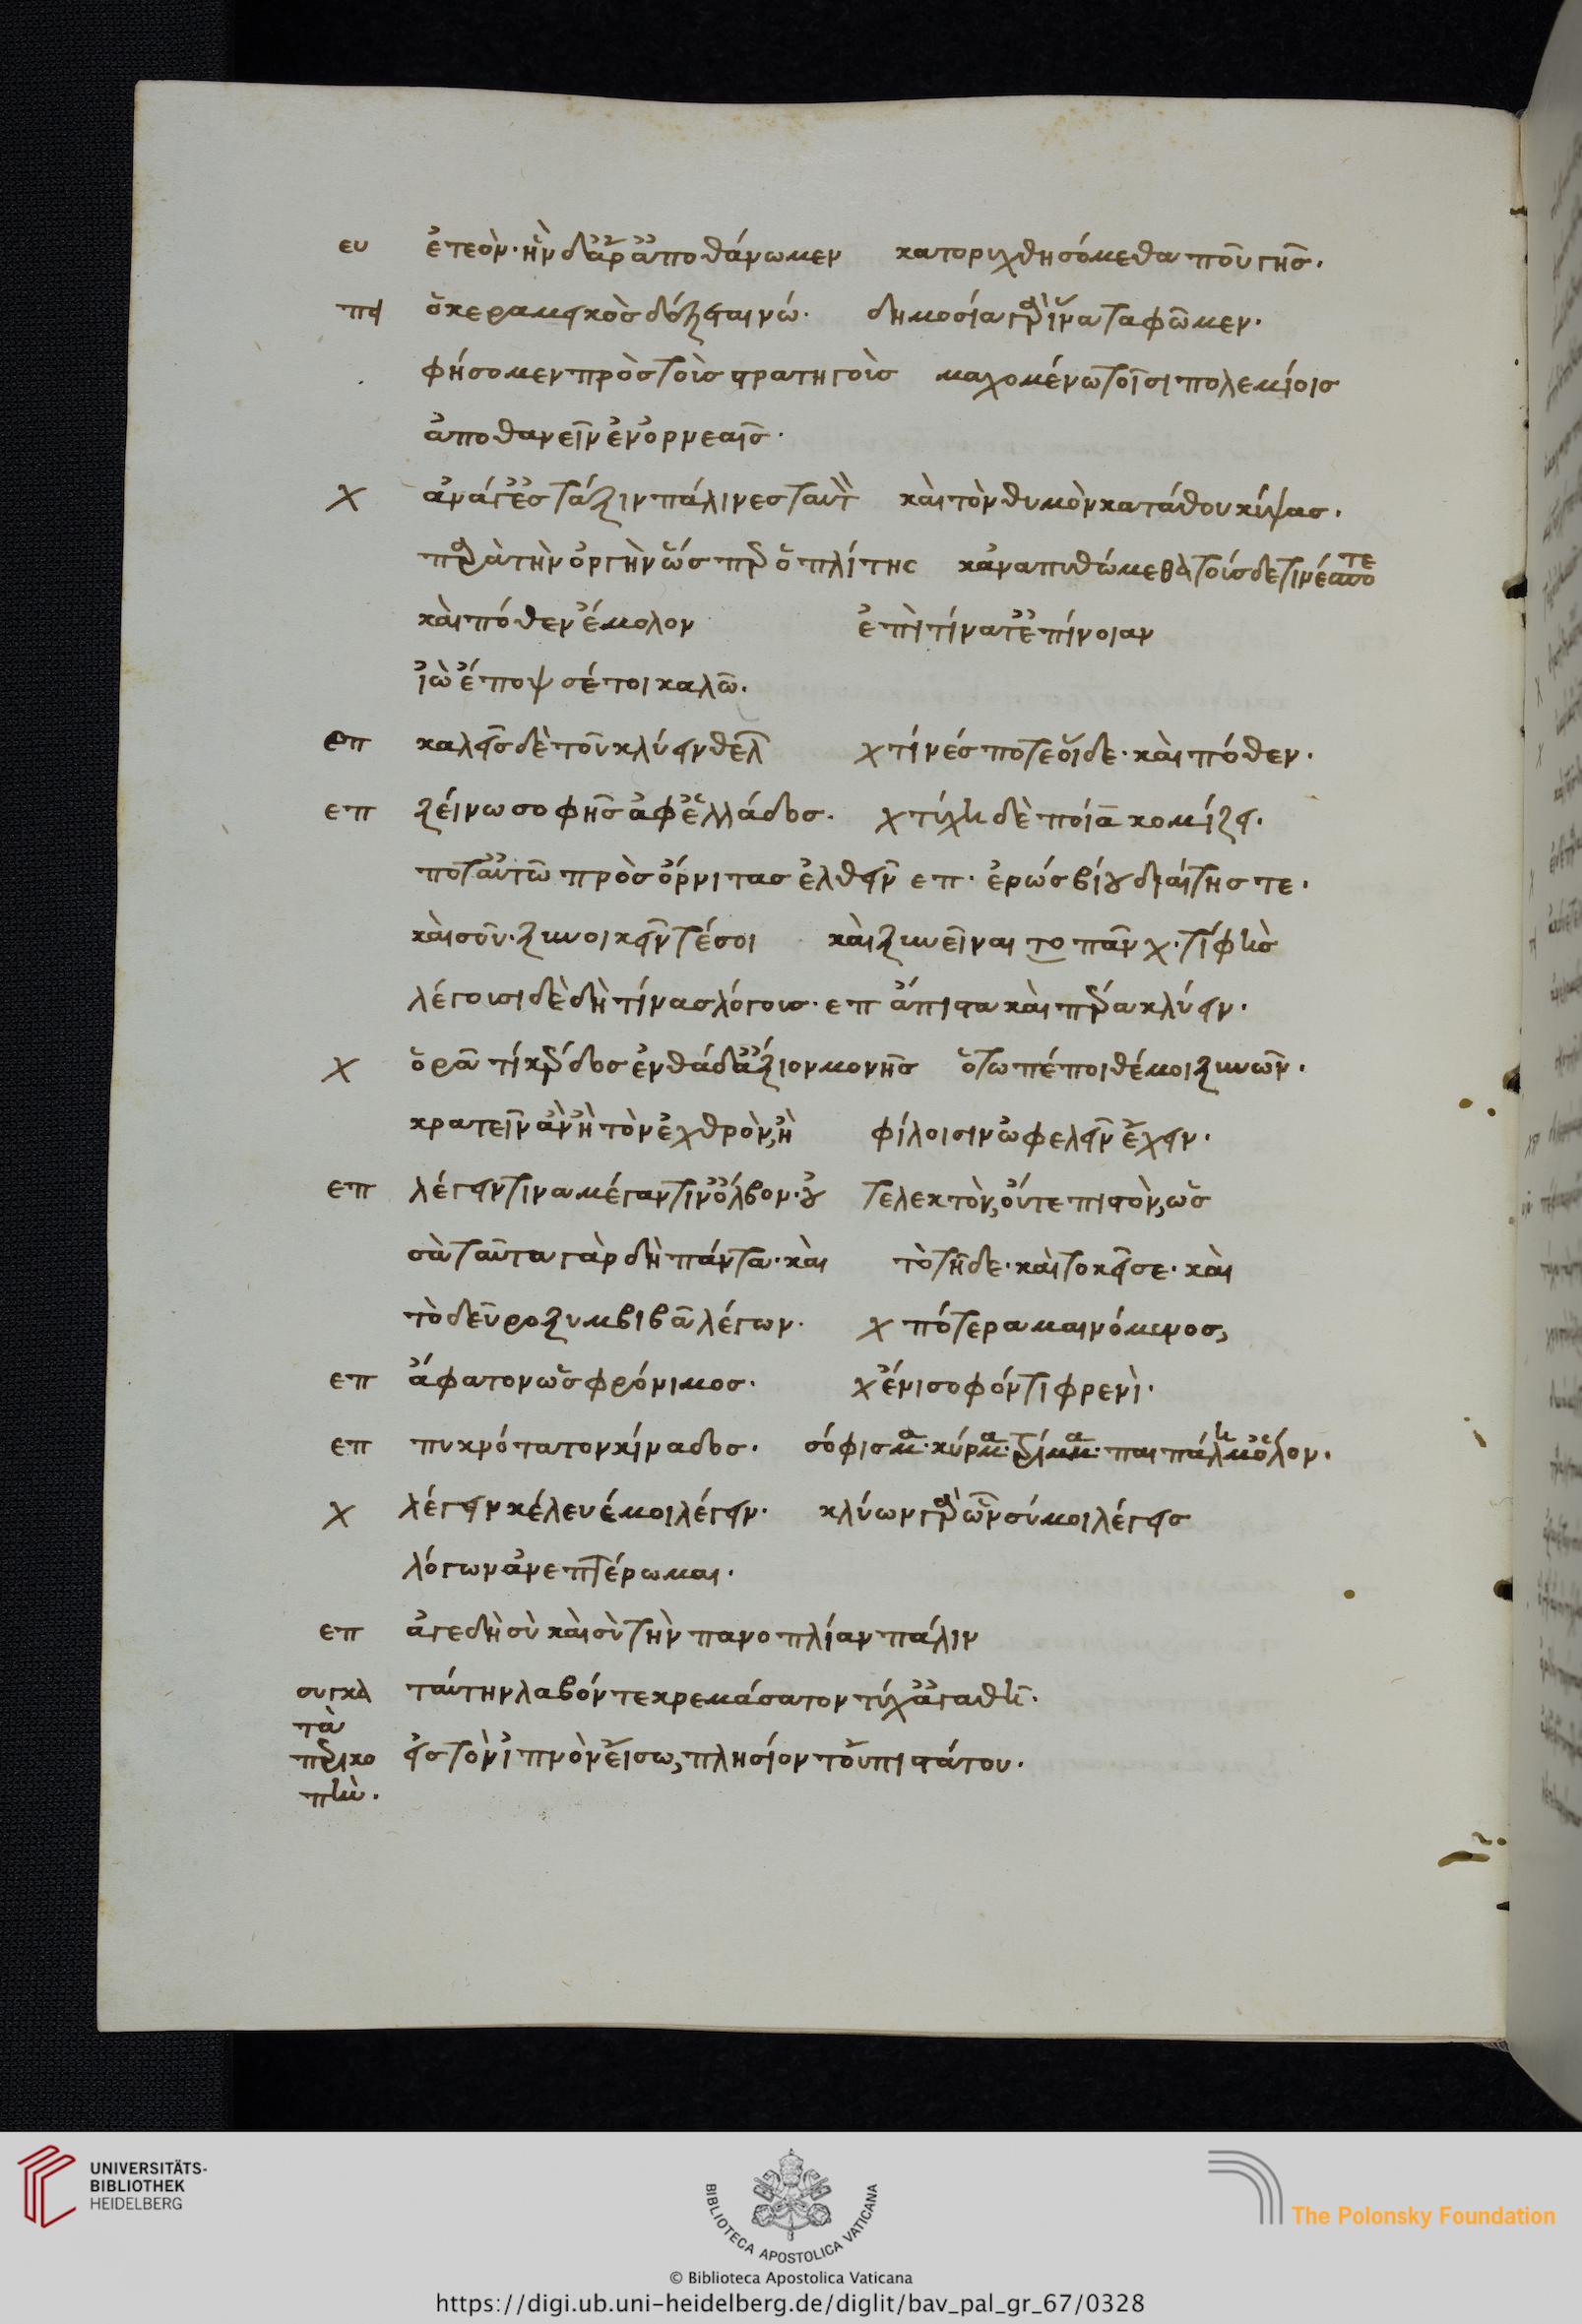 ευ ἐτεόν· ἢν δ' ἄρ' ἀποθάνωμεν κατοριχθησόμεθα ποῦ γῆς.
πει ὁ κεραμεικὸς δέξεται νώ. δημοσία γὰρ ἵνα ταφῶμεν.
φήσομεν πρὸς τοὺς στρατηγοὺς μαχομένω τοῖσι πολεμίοις
ἀποθανεῖν ἐν ὀρνεαῖς.
χ ἄναγ' ἐς τάξιν πάλιν ες ταυτ καὶ τὸν θυμὸν κατάθου κύψας.
παρὰ τὴν ὀργὴν ὥσπερ ὁπλίτης κἀναπυθώμεθα τούσδε τινές ποτε
καὶ πόθεν ἔμολον ἐπὶ τίνα τ' ἐπίνοιαν
ἰὼ ἔποψ σέ τοι καλῶ.
επ καλεῖς δὲ τοῦ κλύειν θελ χ τίνές ποτε οἵδε· καὶ πόθεν.
επ ξείνω σοφῆς ἀφ' ἑλλάδος. χ τύχη δὲ ποία κομίζει
ποτ' αὐτὼ πρὸς ὄρνιτας ἐλθεῖν επ· ἔρως βίου διαίτης τε.
καὶ σοῦ· ξυνοικεῖν τέ σοι καὶ ξυνεῖναι το πᾶν χ· τί φὴς
λέγουσι δὲ δὴ τίνας λόγους· επ ἄπιστα καὶ πέρα κλύειν.
χ ὁρᾶ τί κέρδος ἐνθάδ' ἄξιον μονῆς ὅτω πέποιθέ μοι ξυνὼν.
κρατεῖν ἂν ἢ τὸν ἐχθρὸν, ἢ φίλοισιν ὠφελεῖν ἔχειν.
επ λέγειν τινα μέγαν τιν' ὄλβον· οὐ τε λεκτὸν, οὔτε πιστὸν, ὡς
σὰ ταῦτα γὰρ δὴ πάντα· καὶ τὸ τῆδε· καὶ το κεῖσε· καὶ
τὸ δεῦρο ξυμβιβᾶ λέγων. χ πότερα μαινόμενος,
επ ἄφατον ὡς φρόνιμος. χ ἔνι σοφόν τι φρενὶ.
επ πυκνότατον κίναδος. σόφισμα· κύρμα· τρίμμα· παιπάλημ' ὅλον.
χ λέγειν κέλευέ μοι λέγειν. κλύων γὰρ ὧν σύ μοι λέγεις
λόγων ἀνεπτέρωμαι.
επ ἄγε δὴ σὺ καὶ σὺ τὴν πανοπλίαν πάλιν
ταύτην λαβόντε κρεμάσατον τύχ' ἀγαθῆ.
εἰς τὸν ἰπνὸν εἴσω, πλησίον τοὐπιστάτου.
συγκλ
τὰ
περικο
πὴ.
UNIVERSITÄTS-
BIBLIOTHEK
HEIDELBERG
BIBLIOTECA APOSTOLICA VATICANA
The Polonsky Foundation
© Biblioteca Apostolica Vaticana
https://digi.ub.uni-heidelberg.de/diglit/bav_pal_gr_67/0328